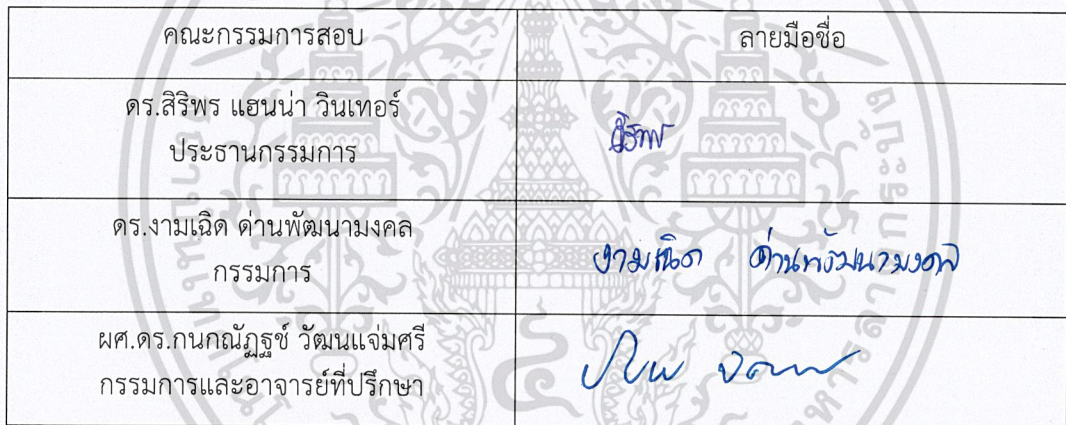 คณะกรรมการสอบ ลายมือชื่อ
ดร.สิริพร แฮนน่า วินเทอร์
ประธานกรรมการ
สิริพร
ดร.งามเฉิด ด่านพัฒนามงคล
กรรมการ
งามเฉิด ด่านพัฒนามงคล
ผศ.ดร.กนกณัฏฐช์ วัฒนแจ่มศรี
กรรมการและอาจารย์ที่ปรึกษา